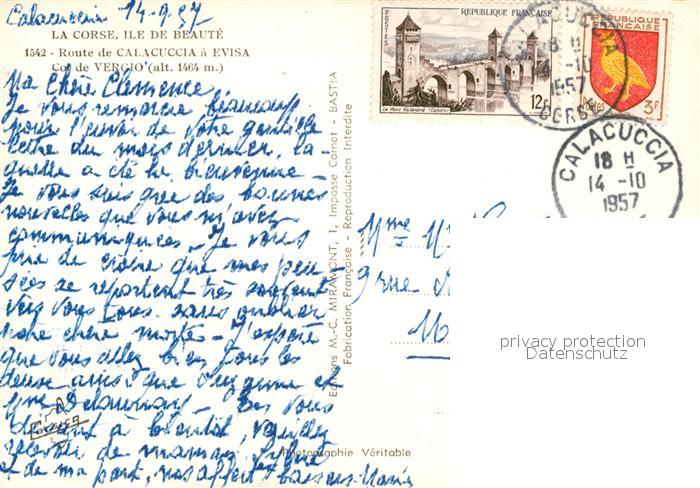 Calacuccia 14.9.57
LA CORSE, ILE DE BEAUTÉ
1542 - Route de CALACUCCIA à EVISA
Col de VERGIO (alt. 1464 m.)
Ma Chère Clémence,
Je vous remercie beaucoup
pour l'envoi de votre gentille
lettre du mois dernier, la-
quelle a été la bienvenue -
Je vous suis gré des bonnes
nouvelles que vous m'avez
communiquées - Je vous
prie de croire que mes pen
sées se reportent très souvent
vers vous tous sans oublier
notre chère - J'espère
que vous allez bien tous les
deux ainsi que et
Mme - En vous
disant à bientôt, veuillez
recevoir de maman,
et de ma part, nos affect baisers. Marie
Editions M.-C. MIRAMONT, 1, Impasse Carnot - BASTIA
Fabrication Française - Reproduction Interdite
Photographie Véritable
POSTES
RÉPUBLIQUE FRANÇAISE
Le Pont Valentré (Cahors)
12F
RÉPUBLIQUE
FRANÇAISE
3F
CALACUCCIA
18 H
-10
1957
CORSE
CALACUCCIA
18 H
14 -10
1957
Mme
9 rue
privacy protection
Datenschutz